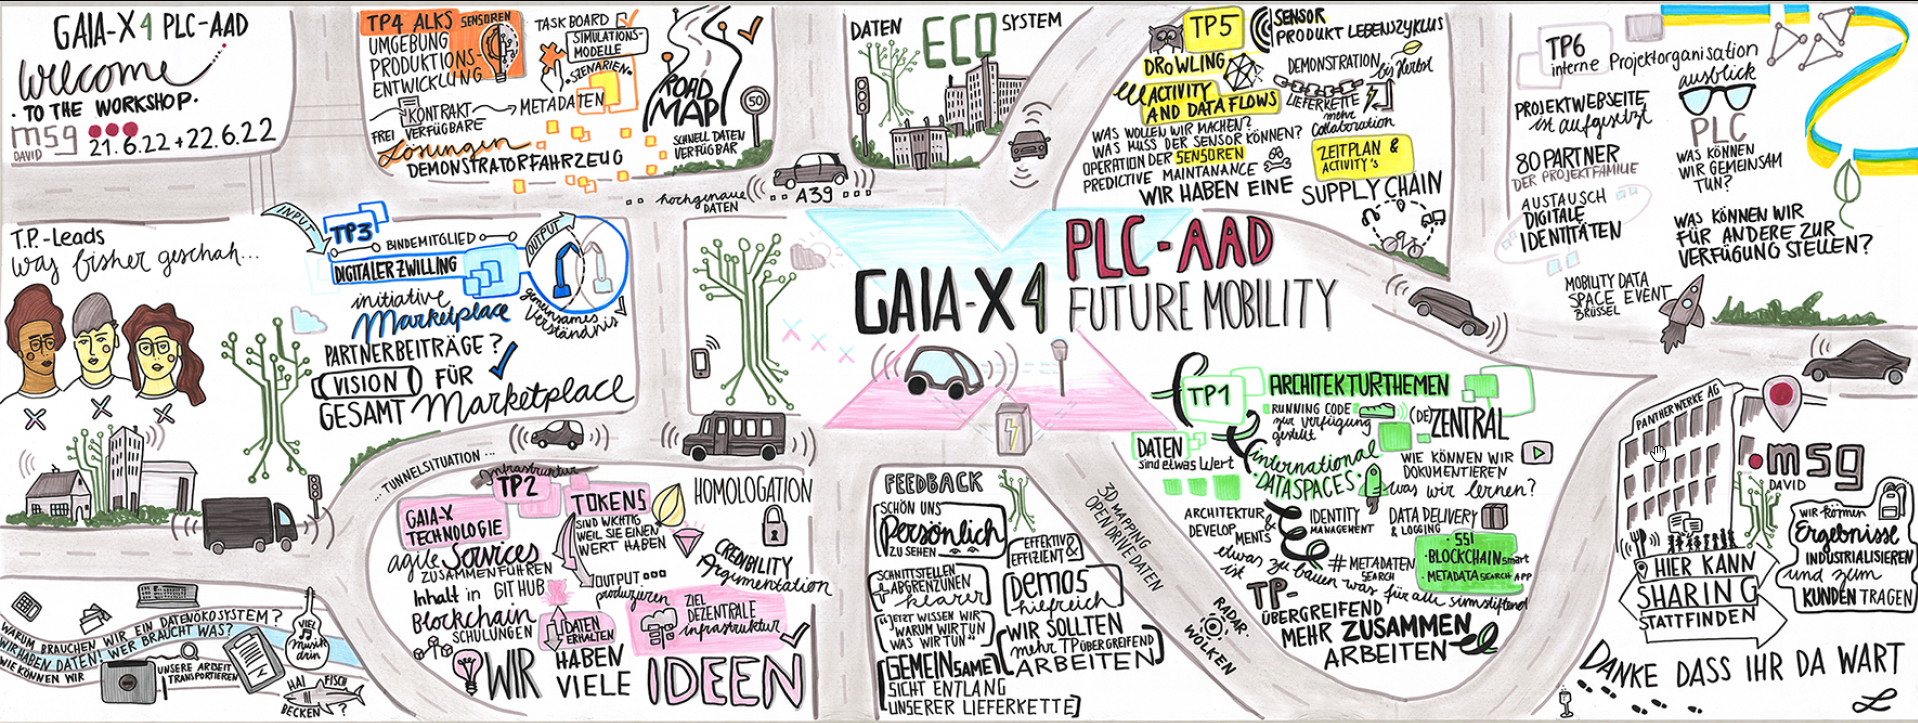 GAIA-X 4 PLC-AAD
welcome
• TO THE WORKSHOP•
msg
DAVID
21.6.22 + 22.6.22
TP4 ALKS
SENSOREN
UMGEBUNG
PRODUKTIONS-
ENTWICKLUNG
KONTRAKT
METADATEN
FREI VERFÜGBARE
Lösungen
DEMONSTRATORFAHRZEUG
TASK BOARD
SIMULATIONS-
MODELLE
SZENARIEN
ROAD
MAP
50
SCHNELL DATEN
VERFÜGBAR
hochgenaue
DATEN
A39
DATEN
ECO
SYSTEM
TP5
DROWLING
ACTIVITY
AND DATA FLOWS
WAS WOLLEN WIR MACHEN?
WAS MUSS DER SENSOR KÖNNEN?
OPERATION DER SENSOREN
PREDICTIVE MAINTANANCE
WIR HABEN EINE
SUPPLY CHAIN
SENSOR
PRODUKT LEBENSZYKLUS
DEMONSTRATION
bis Herbst
LIEFERKETTE
mehr
Collaboration
ZEITPLAN &
ACTIVITY'S
TP6
interne Projektorganisation
ausblick
PROJEKTWEBSEITE
ist aufgesetzt
PLC
WAS KÖNNEN
WIR GEMEINSAM
TUN?
80 PARTNER
DER PROJEKTFAMILIE
AUSTAUSCH
DIGITALE
IDENTITÄTEN
WAS KÖNNEN WIR
FÜR ANDERE ZUR
VERFÜGUNG STELLEN?
MOBILITY DATA
SPACE EVENT
BRÜSSEL
T.P.-Leads
was bisher geschah...
INPUT
TP3
BINDEMITGLIED
OUTPUT
DIGITALER ZWILLING
gemeinsames
Verständnis
initiative
Marketplace
PARTNERBEITRÄGE?
VISION FÜR
GESAMT Marketplace
GAIA-X 4
PLC-AAD
FUTURE MOBILITY
TP1
ARCHITEKTURTHEMEN
RUNNING CODE
zur Verfügung
gestellt
(DE)ZENTRAL
DATEN
sind etwas Wert
international
DATASPACES
WIE KÖNNEN WIR
DOKUMENTIEREN
was wir lernen?
ARCHITEKTUR &
DEVELOPMENTS
IDENTITY
MANAGEMENT
DATA DELIVERY
& LOGGING
etwas zu bauen war für alle sinnstiftend
ist
# METADATEN
SEARCH
• SSI
• BLOCKCHAIN smart
• METADATA SEARCH APP
TP-
ÜBERGREIFEND
MEHR ZUSAMMEN
ARBEITEN
... TUNNELSITUATION ...
infrastruktur
TP2
GAIA-X
TECHNOLOGIE
TOKENS
SIND WICHTIG
WEIL SIE EINEN
WERT HABEN
HOMOLOGATION
agile Services
ZUSAMMENFÜHREN
Inhalt in GIT HUB
Blockchain
SCHULUNGEN
OUTPUT
produzieren
CREDIBILITY
Argumentation
DATEN
ERHALTEN
ZIEL
DEZENTRALE
infrastruktur
WIR HABEN VIELE IDEEN
FEEDBACK
SCHÖN UNS
Persönlich
ZU SEHEN
EFFEKTIV &
EFFIZIENT
SCHNITTSTELLEN
+ ABGRENZUNEN
klarer
Demos
hilfreich
"JETZT WISSEN WIR
WARUM WIR TUN
WAS WIR TUN"
WIR SOLLTEN
mehr TP ÜBERGREIFEND
ARBEITEN
GEMEINSAME
SICHT ENTLANG
UNSERER LIEFERKETTE
3D MAPPING
OPEN DRIVE DATEN
RADAR
WOLKEN
WARUM BRAUCHEN WIR EIN DATENÖKOSYSTEM?
WIR HABEN DATEN! WER BRAUCHT WAS?
WIE KÖNNEN WIR
UNSERE ARBEIT
TRANSPORTIEREN
VIEL
Musik
drin
HAI FISCH
BECKEN?
PANTHERWERKE AG
msg
DAVID
HIER KANN
SHARING
STATTFINDEN
WIR können
Ergebnisse
INDUSTRIALISIEREN
und zum
KUNDEN TRAGEN
DANKE DASS IHR DA WART